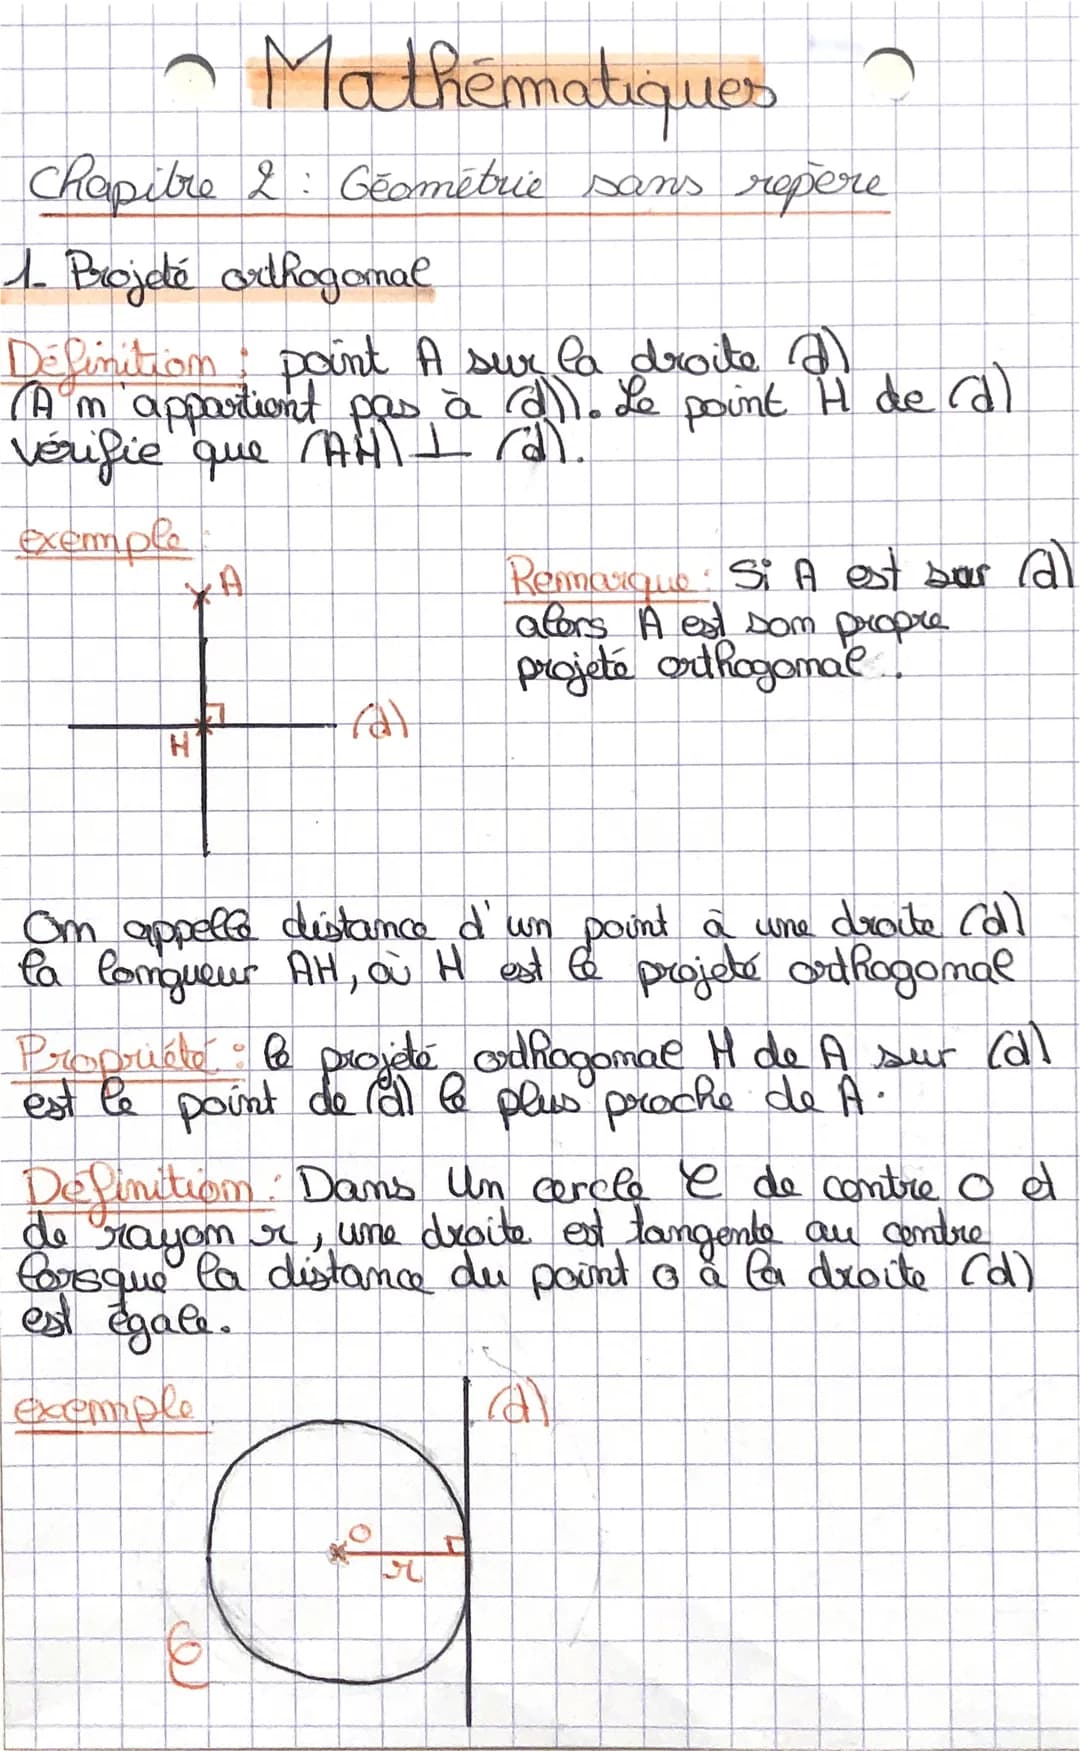 Mathématiques
Chapitre 2 : Géométrie sans repère
1- Projeté orthogonal
Définition : point A sur la droite (d)
(A n'appartient pas à (d)). Le point H de (d)
vérifie que (AH) ⊥ (d).
exemple :
A
Remarque : Si A est sur (d)
alors A est son propre
projeté orthogonal.
(d)
H
On appelle distance d'un point à une droite (d)
la longueur AH, où H est le projeté orthogonal
Propriété : le projeté orthogonal H de A sur (d)
est le point de (d) le plus proche de A.
Définition : Dans Un cercle C de centre O et
de rayon r, une droite est tangente au centre
lorsque la distance du point O à la droite (d)
est égale.
exemple
(d)
O
r
C